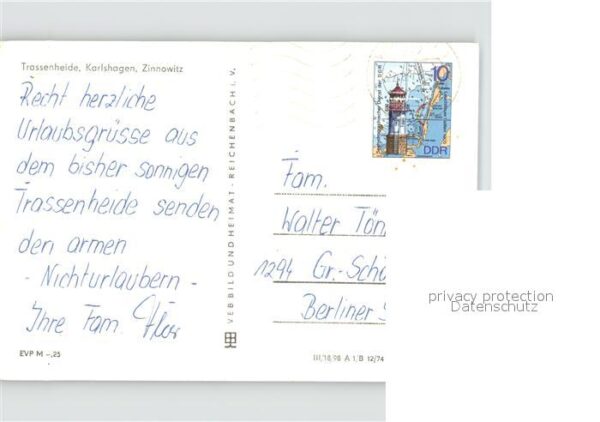 Trassenheide, Karlshagen, Zinnowitz
Recht herzliche
Urlaubsgrüsse aus
dem bisher sonnigen
Trassenheide senden
den armen
- Nichturlaubern -
Ihre Fam.
EVP M -,25
VEB BILD UND HEIMAT · REICHENBACH i. V.
10
DDR
Fam.
Walter Tön
1294 Gr.-Schö
Berliner S
III/18/98 A 1, B 12/74
privacy protection
Datenschutz